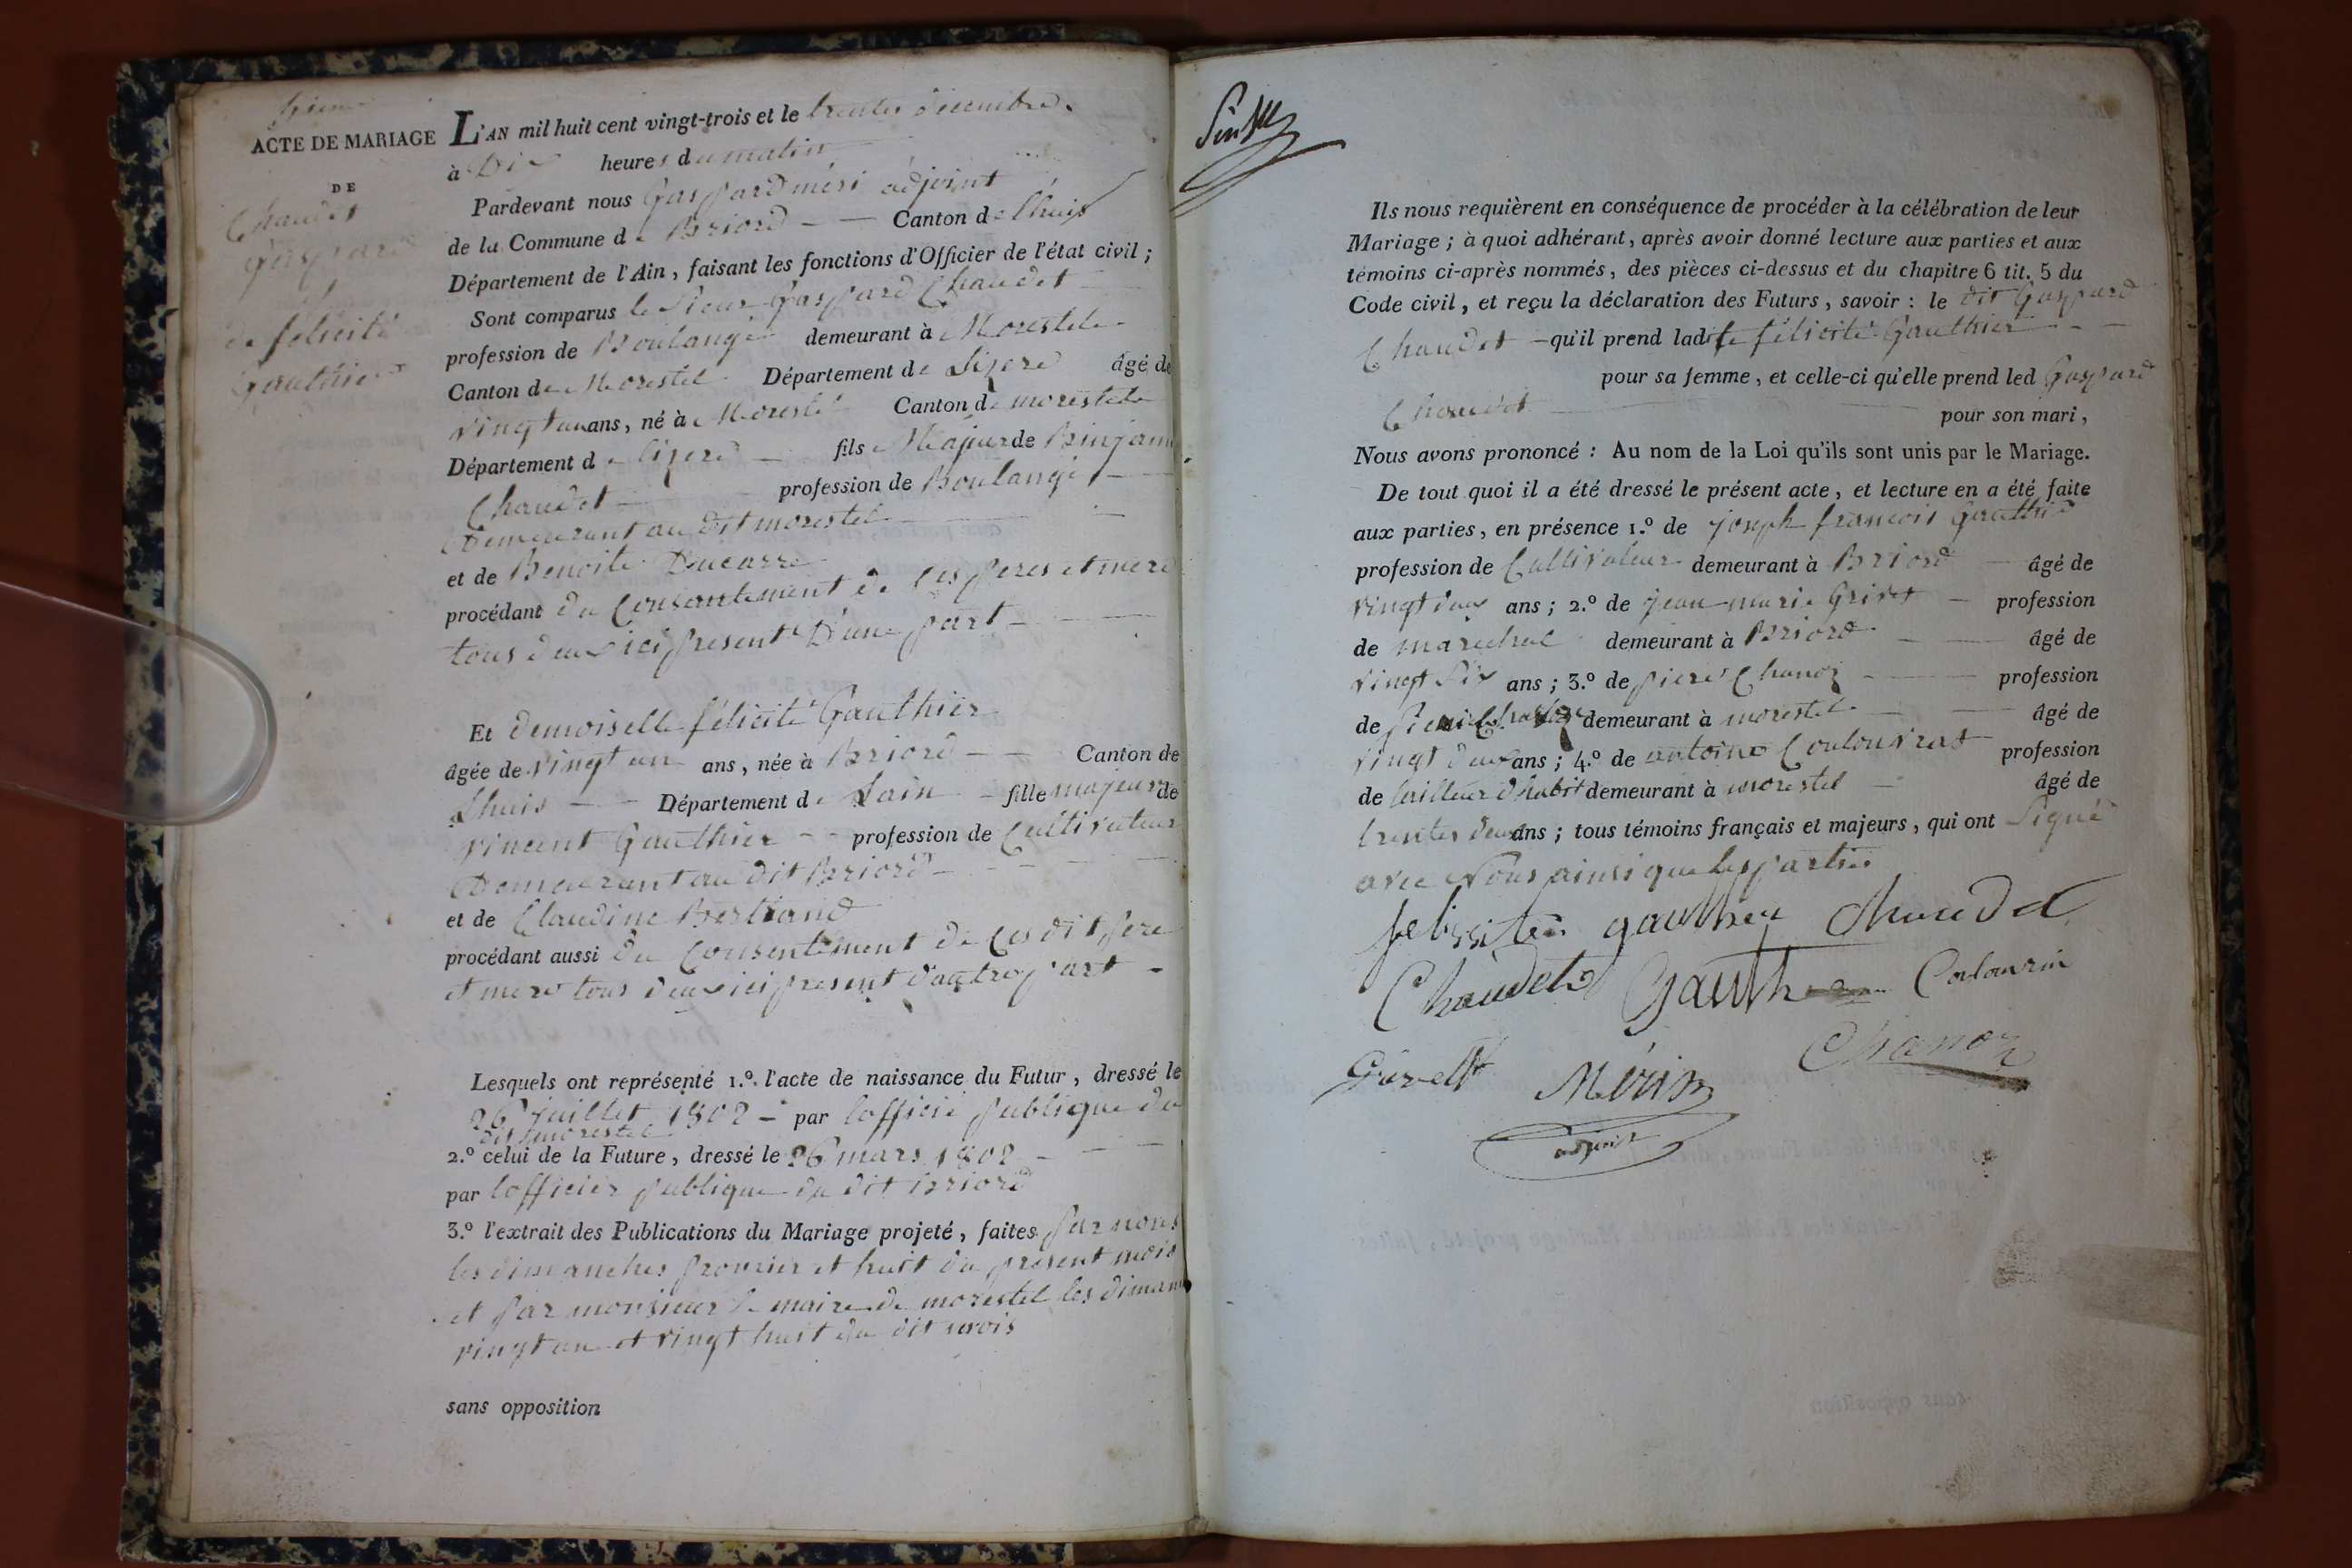 ACTE DE MARIAGE
DE
Chaudet
gaspard
de felicité
Gauthier
L'AN mil huit cent vingt-trois et le trentes décembre.
à Dix heures du matin
Pardevant nous Gaspard méri adjoint
de la Commune de Briord — Canton de Lhuis
Département de l'Ain, faisant les fonctions d'Officier de l'état civil;
Sont comparus le Sieur Gaspard Chaudet
profession de Boulangé demeurant à Morestel
Canton de Morestel Département de Lizere âgé de
vingt un ans, né à Morestel Canton de morestel
Département de lizere — fils Majeur de Binjam
Chaudet — profession de Boulangé —
Demeurant au dit morestel —
et de Benoite Ducarre
procédant du Consentement de Ces peres et mere
tous deux ici present D'une part —
Et demoiselle félicité Gauthier
âgée de vingt un ans, née à Briord — Canton de
Lhuis — Département de Lain — fille majeur de
vincent Gauthier — profession de Cultivateur
Demeurant au dit Briord —
et de Claudine Bertrand
procédant aussi du Consentement de Ces dit pere
et mere tous deux ici present d'autre part -
Lesquels ont représenté 1.º l'acte de naissance du Futur, dressé le
26 juillet 1802 - par lofficié publique du
dit morestel
2.º celui de la Future, dressé le 26 mars 1802 —
par lofficier publique du dit Briord
3.º l'extrait des Publications du Mariage projeté, faites par nous
les dimanches premier et huit du présent mois
et par monsieur le maire de morestel les diman
vingt un et vingt huit du dit mois
sans opposition
Ils nous requièrent en conséquence de procéder à la célébration de leur
Mariage; à quoi adhérant, après avoir donné lecture aux parties et aux
témoins ci-après nommés, des pièces ci-dessus et du chapitre 6 tit. 5 du
Code civil, et reçu la déclaration des Futurs, savoir : le dit Gaspard
Chaudet — qu'il prend ladite félicité Gauthier —
pour sa femme, et celle-ci qu'elle prend led Gaspard
Chaudet — pour son mari,
Nous avons prononcé : Au nom de la Loi qu'ils sont unis par le Mariage.
De tout quoi il a été dressé le présent acte, et lecture en a été faite
aux parties, en présence 1.º de joseph francois Gauthié
profession de Cultivateur demeurant à Briord — âgé de
vingt deux ans; 2.º de jean marie Grivet — profession
de maréchal demeurant à Briord — âgé de
vingt Six ans; 3.º de piere Chanoz — profession
de demeurant à morestel — âgé de
vingt deux ans; 4.º de antoine Coulouvrat profession
de tailleur d'habit demeurant à morestel — âgé de
trentes deux ans; tous témoins français et majeurs, qui ont Signé
avec Nous ainsi que les parties
felissitéé gauthey Chaudet
Chaudet Gauth Coulouvrin
Chanoz
Grivett Mérim
adjoint